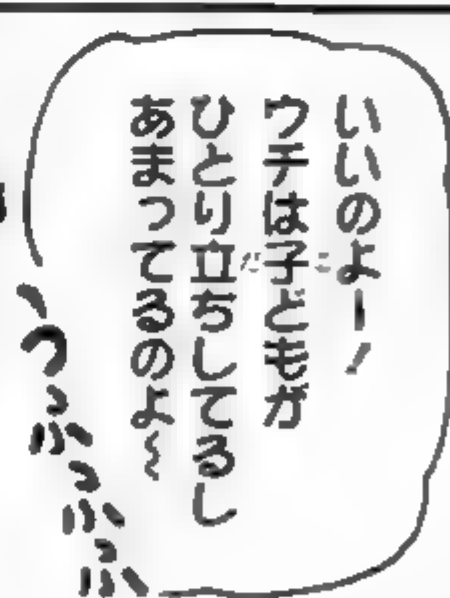 いいのよー！
ウチは子どもが
ひとり立ちしてるし
あまってるのよ〜
うふふふ